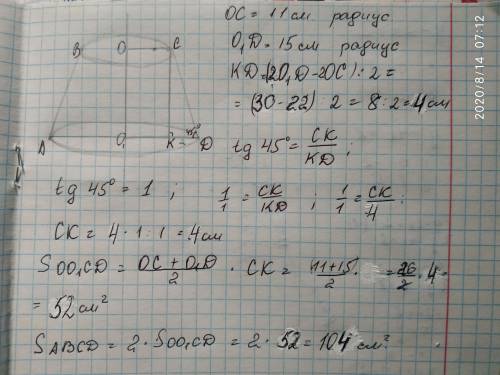 OC = 11 см радиус
O₁D = 15 см радиус
KD = (2O₁D - 2OC) : 2 =
= (30 - 22) : 2 = 8 : 2 = 4 см
B O C
A O₁ K D
45°
tg 45° = CK/KD ;
tg 45° = 1 ; 1/1 = CK/KD ; 1/1 = CK/4 ;
CK = 4 · 1 : 1 = 4 см
S OO₁CD = (OC + O₁D)/2 · CK = (11+15)/2 · = 26/2 · 4 =
= 52 см²
S ABCD = 2 · S OO₁CD = 2 · 52 = 104 см²
2020/8/14 07:12